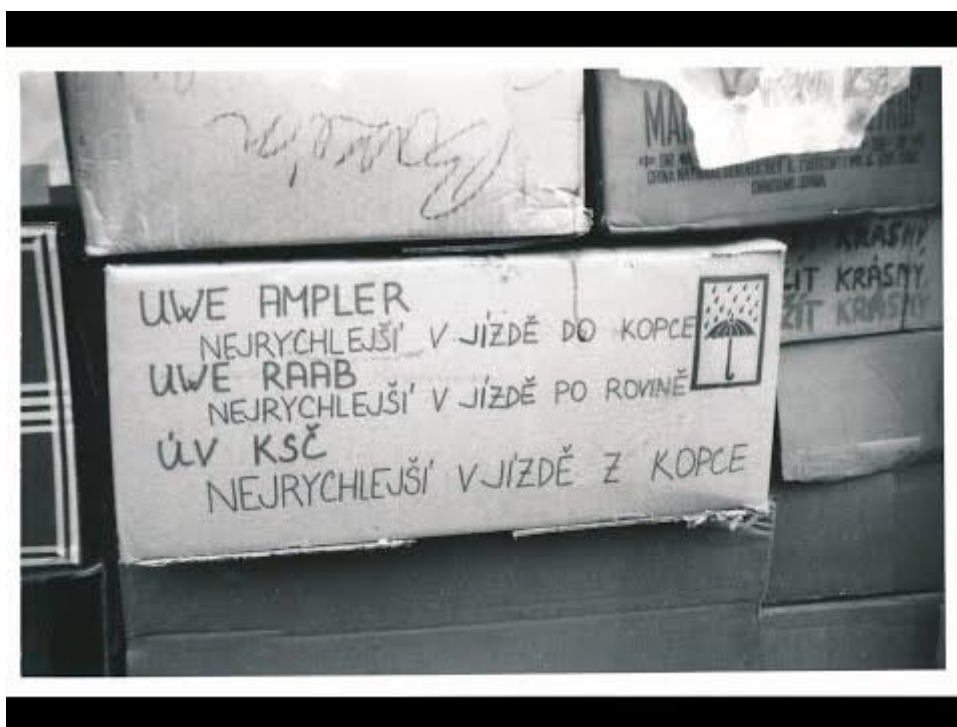 UWE AMPLER
NEJRYCHLEJŠÍ V JÍZDĚ DO KOPCE
UWE RAAB
NEJRYCHLEJŠÍ V JÍZDĚ PO ROVINĚ
ÚV KSČ
NEJRYCHLEJŠÍ V JÍZDĚ Z KOPCE
KRÁSNÝ
ŽÍT KRÁSNÝ
ŽÍT KRÁSNÝ